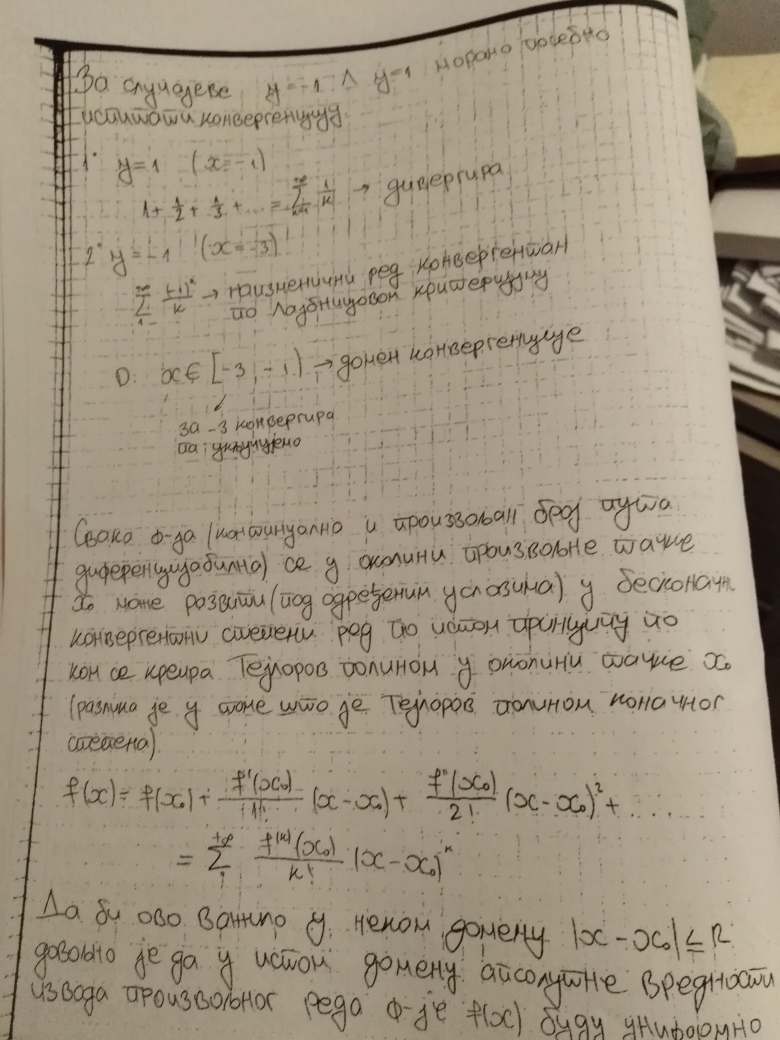 За случајеве y=-1 ∧ y=1 морамо посебно
испитати конвергенцију
1° y=1 (x=-1)
1+ 1/2 + 1/3 + ... = ∑ 1/k → дивергира
2° y=-1 (x=-3)
∑ (-1)^k/k → наизменични ред конвергентан
по Лајбницовом критеријуму
D: x∈[-3, -1) → домен конвергенције
за -3 конвергира
па укључено
Свака ф-ја (континуално и произвољан број пута
диференцијабилна) се у околини произвољне тачке
x₀ може развити (под одређеним условима) у бесконачн
конвергентни степени ред по истом принципу по
ком се креира Тејлоров полином у околини тачке x₀
(разлика је у томе што је Тејлоров полином коначног
степена)
f(x) = f(x₀) + f'(x₀)/1! (x-x₀) + f''(x₀)/2! (x-x₀)² + ....
= ∑ f^(k)(x₀)/k! (x-x₀)^k
Да би ово важило у неком домену |x-x₀|≤R
довољно је да у истом домену апсолутне вредности
извода произвољног реда ф-је f(x) буду униформно